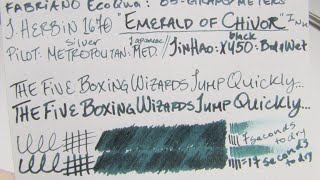 FABRIANO EcoQua: 85-GRAMS/METERS
J. HERBIN 1670 "EMERALD OF CHIVOR" INK
Silver Japanese black
PILOT: METROPOLITAN: MED. / JINHAO: X450: BOLD/WET
THE FIVE BOXING WIZARDS JUMP QUICKLY...
THE FIVE BOXING WIZARDS JUMP QUICKLY...
17 seconds to dry
17 seconds to dry